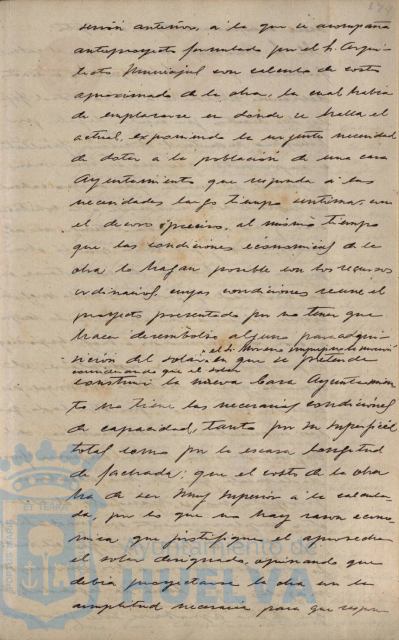 sesión anterior, a la que se acompaña
anteproyecto formulado por el Sr. Arqui-
tecto Municipal con cálculo de coste
aproximado de la obra, la cual había
de emplazarse en donde se halla el
actual, exponiendo la urgente necesidad
de dotar a la población de una casa
Ayuntamiento que responda a las
necesidades largo tiempo sentidas, con
el decoro preciso, al mismo tiempo
que las condiciones económicas de la
obra lo hagan posible con los recursos
ordinarios, cuyas condiciones reune el
proyecto presentado por no tener que
hacer desembolso alguno para adqui-
sición del solar, en que se pretende
el Sr. Moreno
considerando que el solar
construir la nueva Casa Ayuntamien-
to no tiene las necesarias condiciones
de capacidad, tanto por su superficie
total como por la escasa longitud
de fachada; que el costo de la obra
ha de ser muy superior a la calcula-
da, por lo que no hay razon econo-
mica que justifique el aprovechar
el solar designado, opinando que
debia proyectarse la obra con la
amplitud necesaria para que respon-
Ayuntamiento de
HUELVA